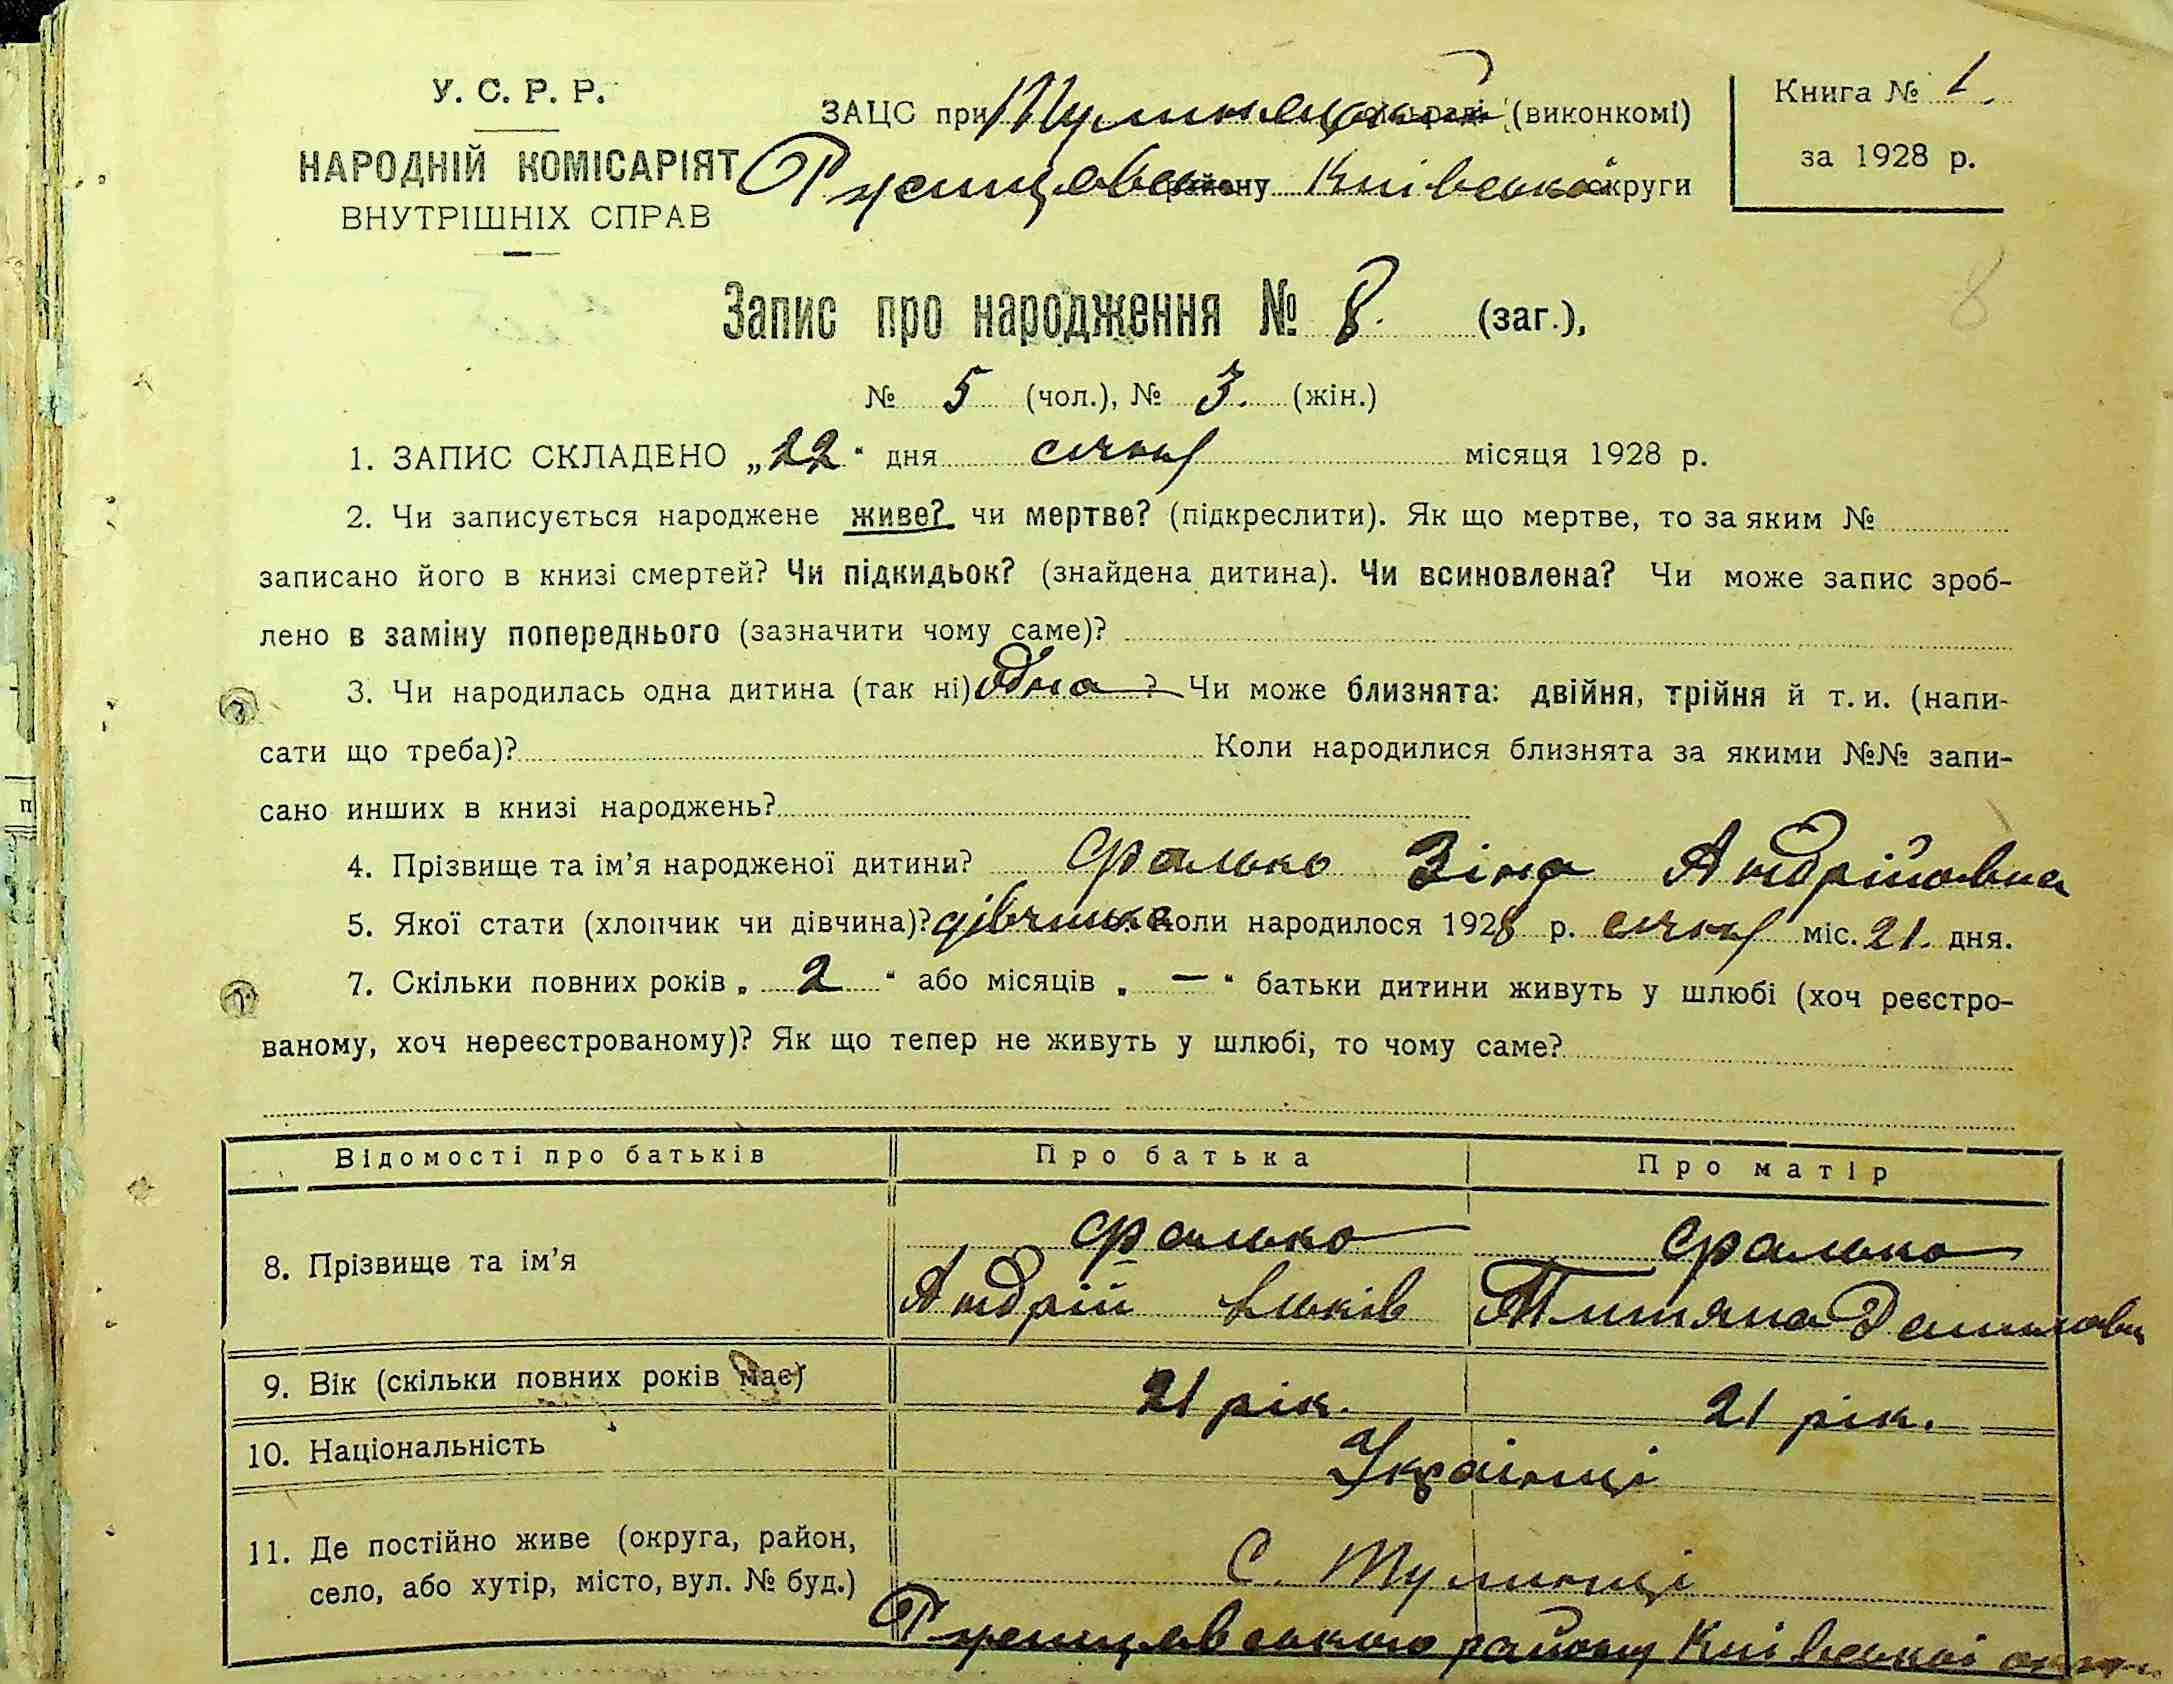 У. С. Р. Р.
НАРОДНІЙ КОМІСАРІЯТ
ВНУТРІШНІХ СПРАВ
ЗАЦС при Тулинецькій сільраді (виконкомі)
Ржищівського району Київської округи
Книга № 1.
за 1928 р.
8
Запис про народження № 8. (заг.),
№ 5 (чол.), № 3. (жін.)
1. ЗАПИС СКЛАДЕНО „22“ дня січня місяця 1928 р.
2. Чи записується народжене живе? чи мертве? (підкреслити). Як що мертве, то за яким №
записано його в книзі смертей? Чи підкидьок? (знайдена дитина). Чи всиновлена? Чи може запис зроб-
лено в заміну попереднього (зазначити чому саме)?
3. Чи народилась одна дитина (так ні) Одна ? Чи може близнята: двійня, трійня й т. и. (напи-
сати що треба)? Коли народилися близнята за якими №№ запи-
сано инших в книзі народжень?
4. Прізвище та ім’я народженої дитини? Фалько Зіна Андрійовна
5. Якої стати (хлопчик чи дівчина)? дівчинка Коли народилося 1928 р. січня міс. 21. дня.
7. Скільки повних років „ 2 “ або місяців „ — “ батьки дитини живуть у шлюбі (хоч реєстро-
ваному, хоч нереєстрованому)? Як що тепер не живуть у шлюбі, то чому саме?
Відомості про батьків Про батька Про матір
8. Прізвище та ім’я Фалько Фалько
Андрій Тетяна
9. Вік (скільки повних років має) 21 рік. 21 рік.
10. Національність Українці
11. Де постійно живе (округа, район,
село, або хутір, місто, вул. № буд.)
С. Тулинці
Ржищівського району Київської